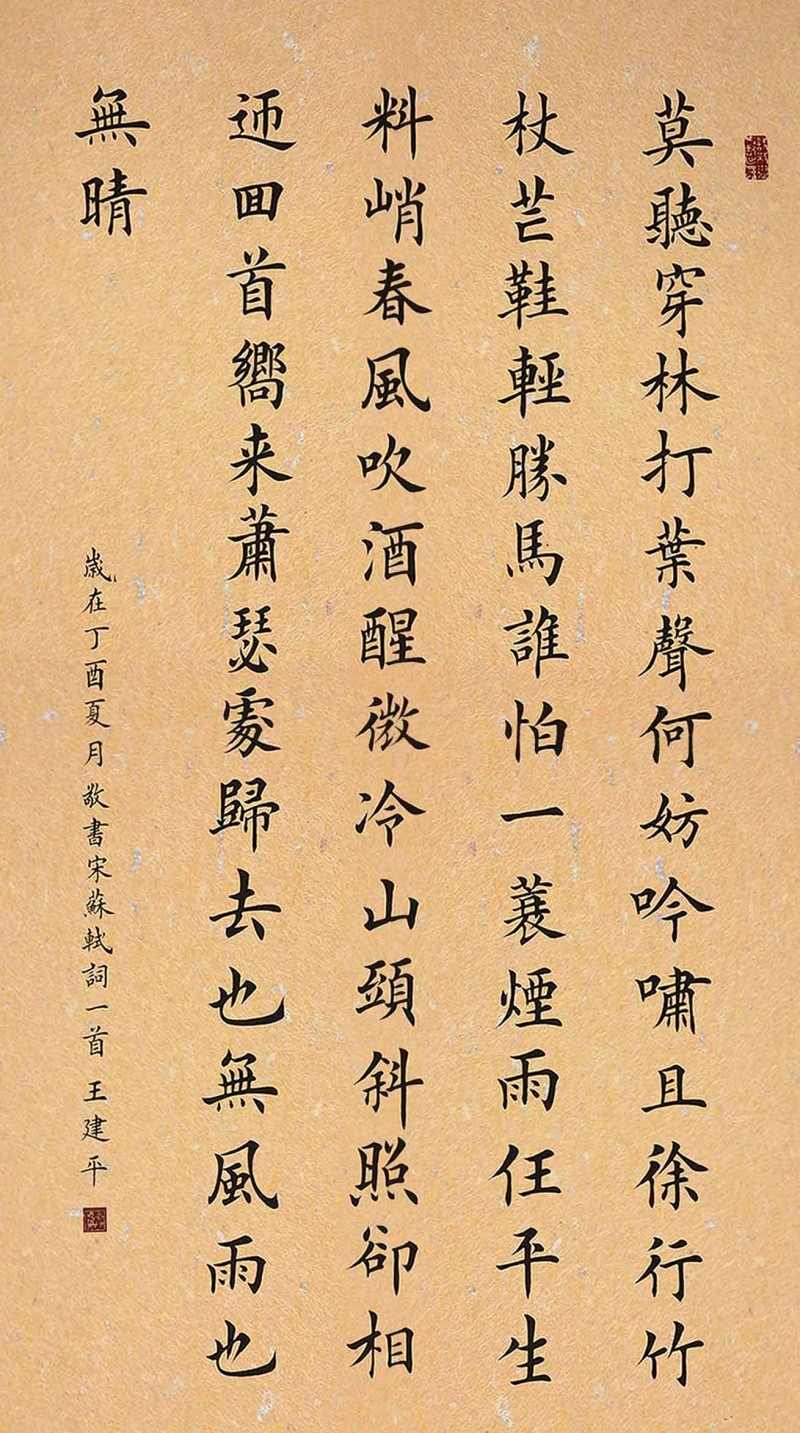 莫聽穿林打葉聲何妨吟嘯且徐行竹
杖芒鞋輕勝馬誰怕一蓑煙雨任平生
料峭春風吹酒醒微冷山頭斜照卻相
迊回首嚮来蕭瑟處歸去也無風雨也
無晴
歲在丁酉夏月敬書宋蘇軾詞一首王建平